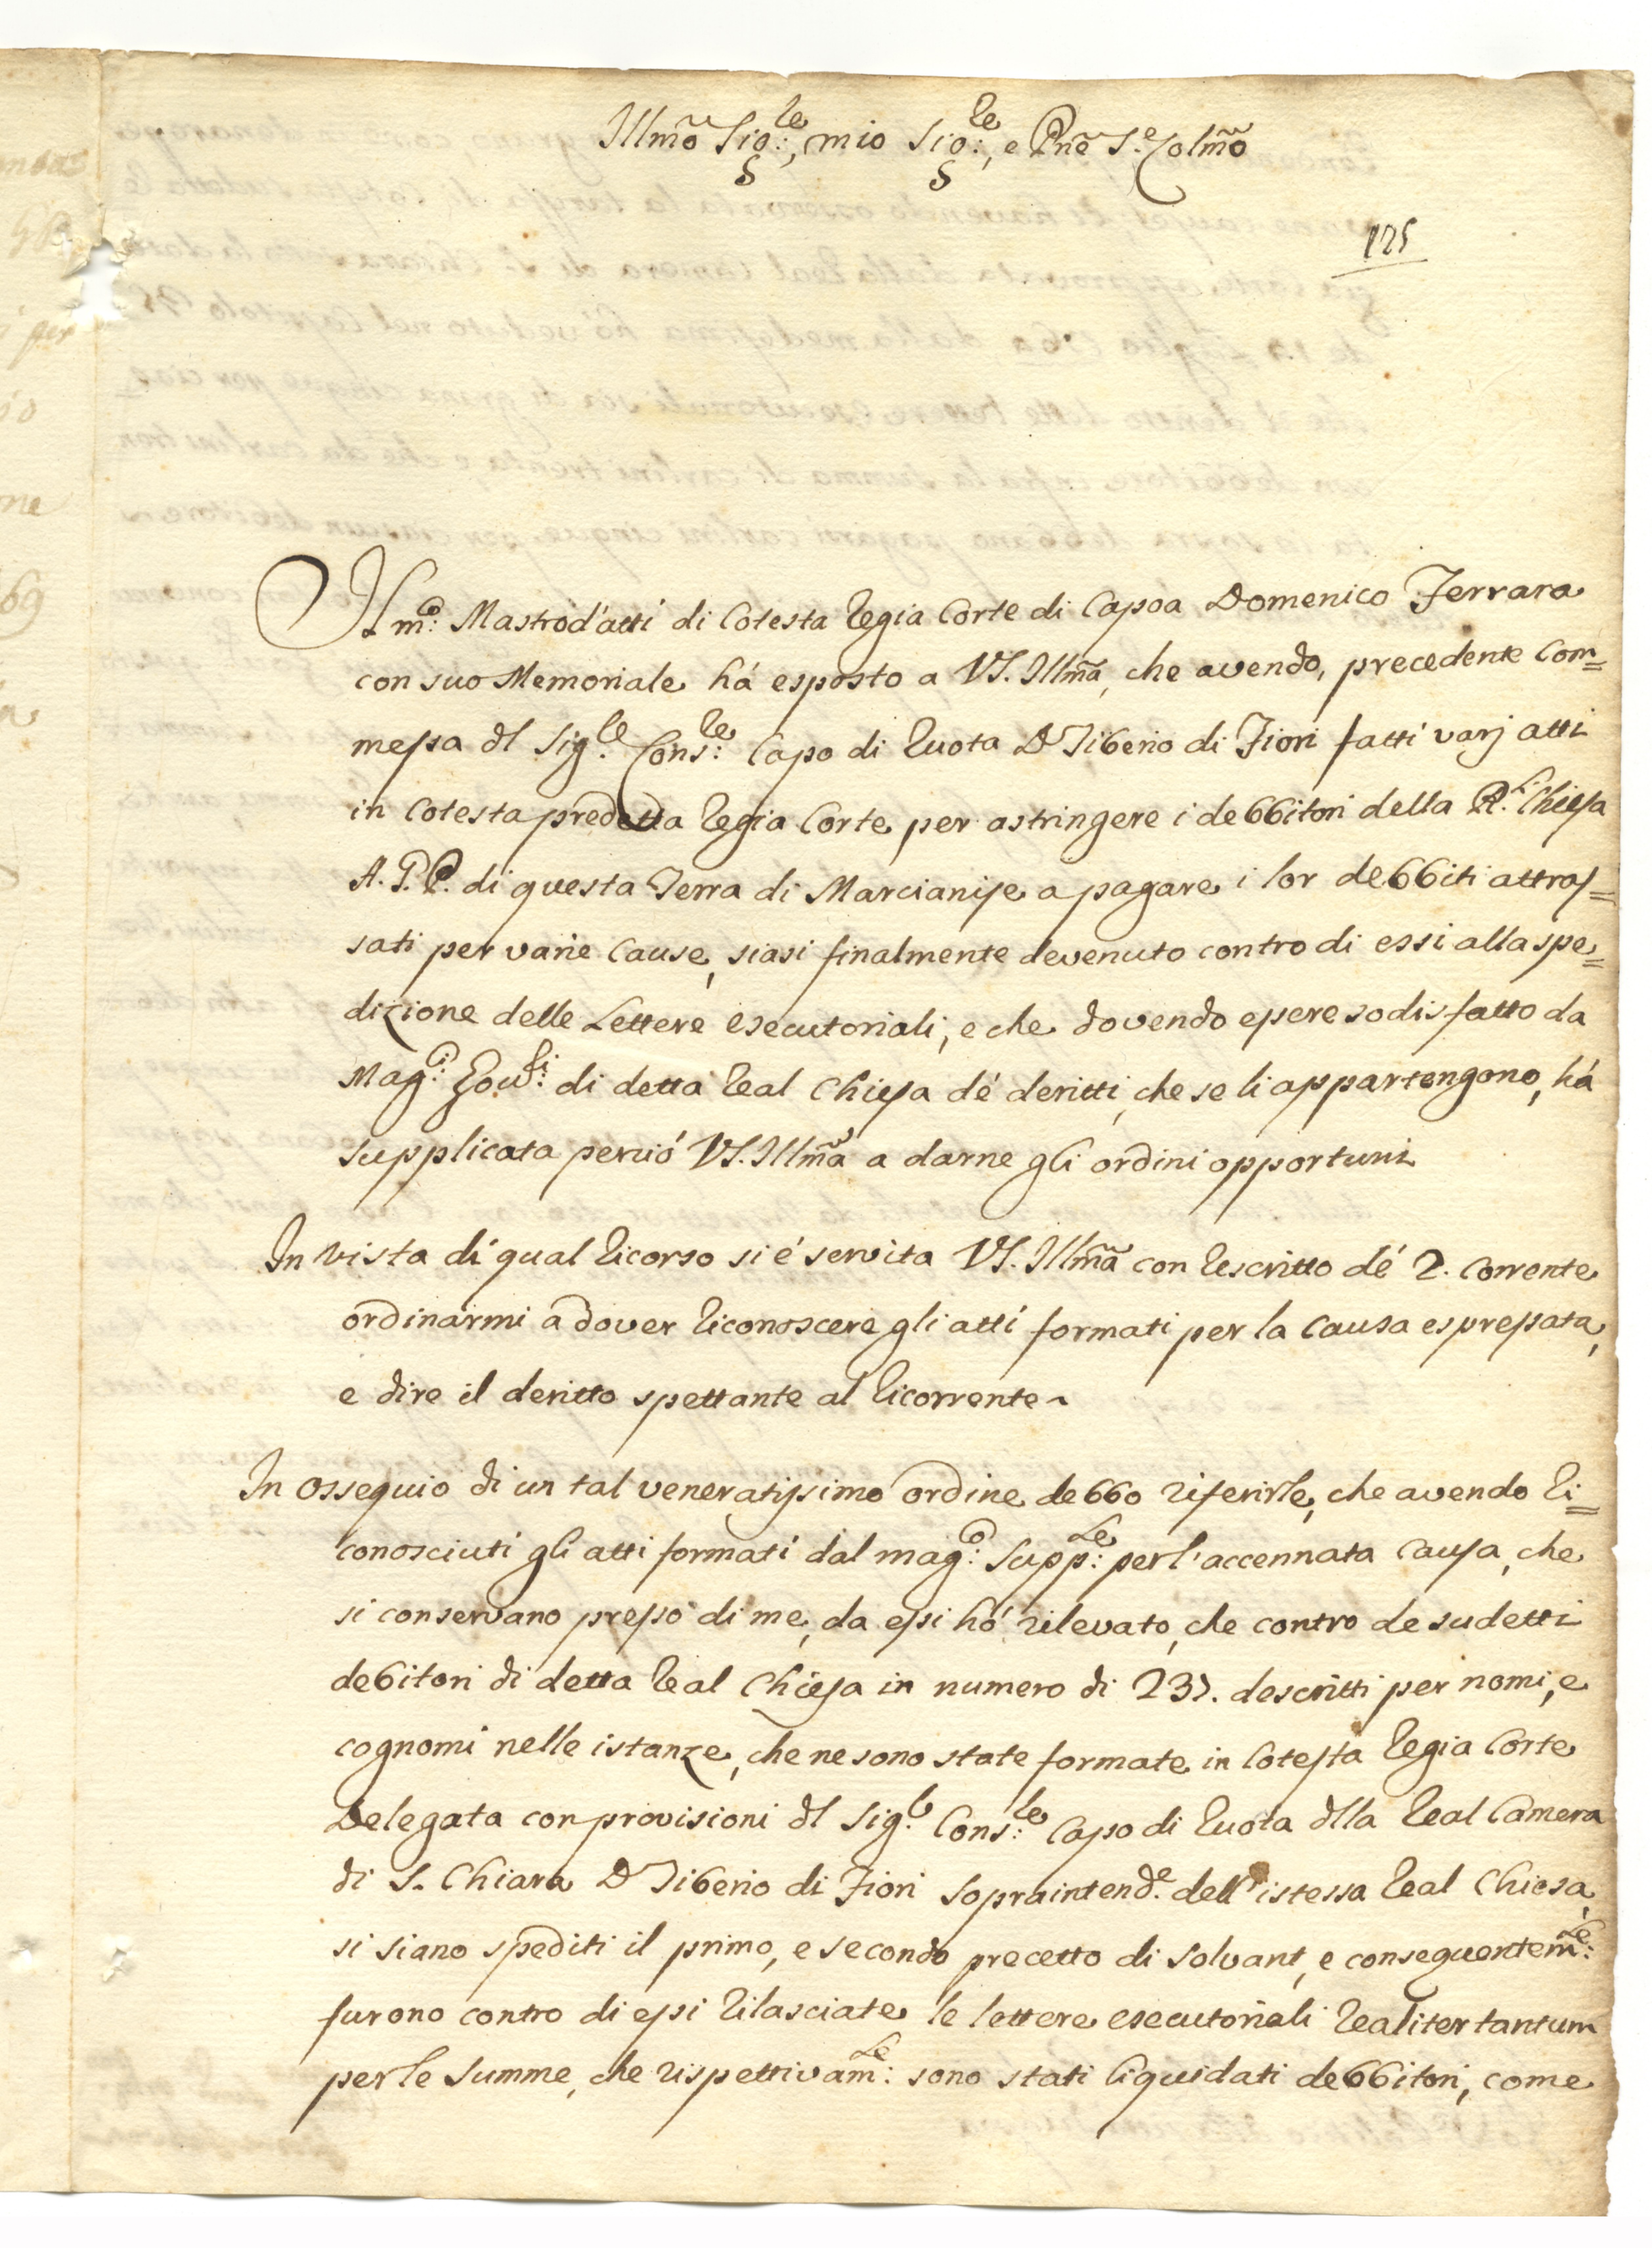 Illmo Sig:re, mio Sig:re, e Pne S.e Colmo
125
Il m:co Mastrod'atti di Cotesta Regia Corte di Capoa Domenico Ferrara
con suo Memoriale há esposto a VS. Illma, che avendo, precedente Com=
messa dl Sig.le Cons:re Capo di Ruota D Tiberio di Fiori fatti varj atti
in Cotesta predetta Regia Corte, per astringere i debbitori della R.l Chiesa
A. G. P. di questa Terra di Marcianise a pagare i lor debbiti attras=
sati per varie Cause, siasi finalmente devenuto contro di essi alla spe=
dizione delle Lettere esecutoriali, e che dovendo essere sodisfatto da
Mag:ci Gov:ri di detta Real Chiesa dé deritti, che se li appartengono, há
supplicata perció VS. Illma a darne gli ordini opportuni
In vista di qual Ricorso si é servita VS. Illma con Rescritto dé 2. corrente
ordinarmi a dover riconoscere gli atti formati per la Causa espressata,
e dire il deritto spettante al Ricorrente
In ossequio di un tal veneratissimo ordine debbo riferirle, che avendo Ri=
conosciuti gli atti formati dal mag:co Supp:te per l'accennata Causa, che
si conservano presso di me, da essi hó rilevato, che contro de sudetti
debitori di detta Real Chiesa in numero di 237. descritti per nomi, e
cognomi nelle istanze, che ne sono state formate in Cotesta Regia Corte
Delegata con provisioni dl Sig.le Cons:re Capo di Ruota dlla Real Camera
di S. Chiara D Tiberio di Fiori Sopraintend.e dell'istessa Real Chiesa,
si siano spediti il primo, e secondo precetto di Solvant, e conseguentem:te
furono contro di essi rilasciate le lettere esecutoriali realiter tantum
per le Summe, che rispettivam:te sono stati liquidati debbitori, come